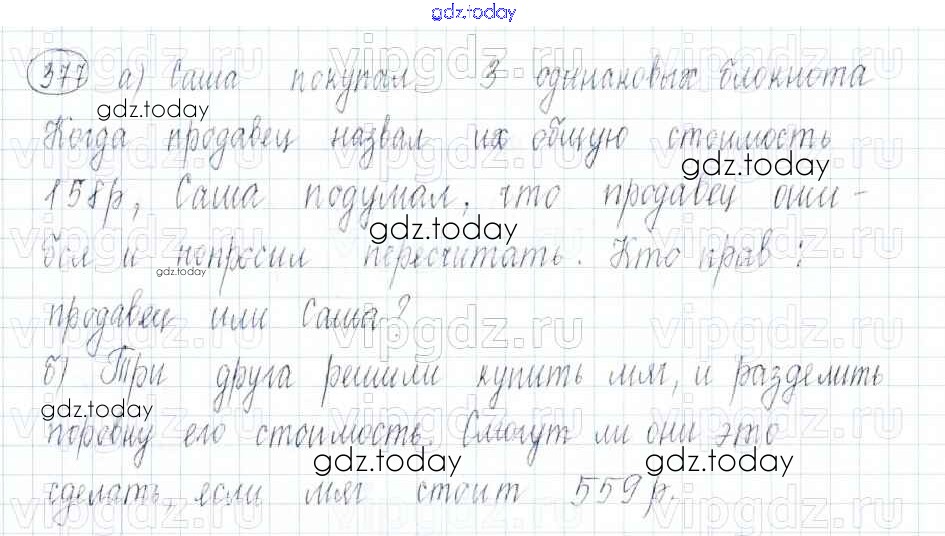 gdz.today
377 а) Саша покупал 3 одинаковых блокнота
gdz.today
Когда продавец назвал их общую стоимость
gdz.today
158р, Саша подумал, что продавец оши-
gdz.today
бся и попросил пересчитать. Кто прав:
gdz.today
продавец или Саша?
vipgdz.ru
б) Три друга решили купить мяг, и разделить
gdz.today
поровну его стоимость. Смогут ли они это
gdz.today gdz.today
сделать, если мяг стоит 559р.